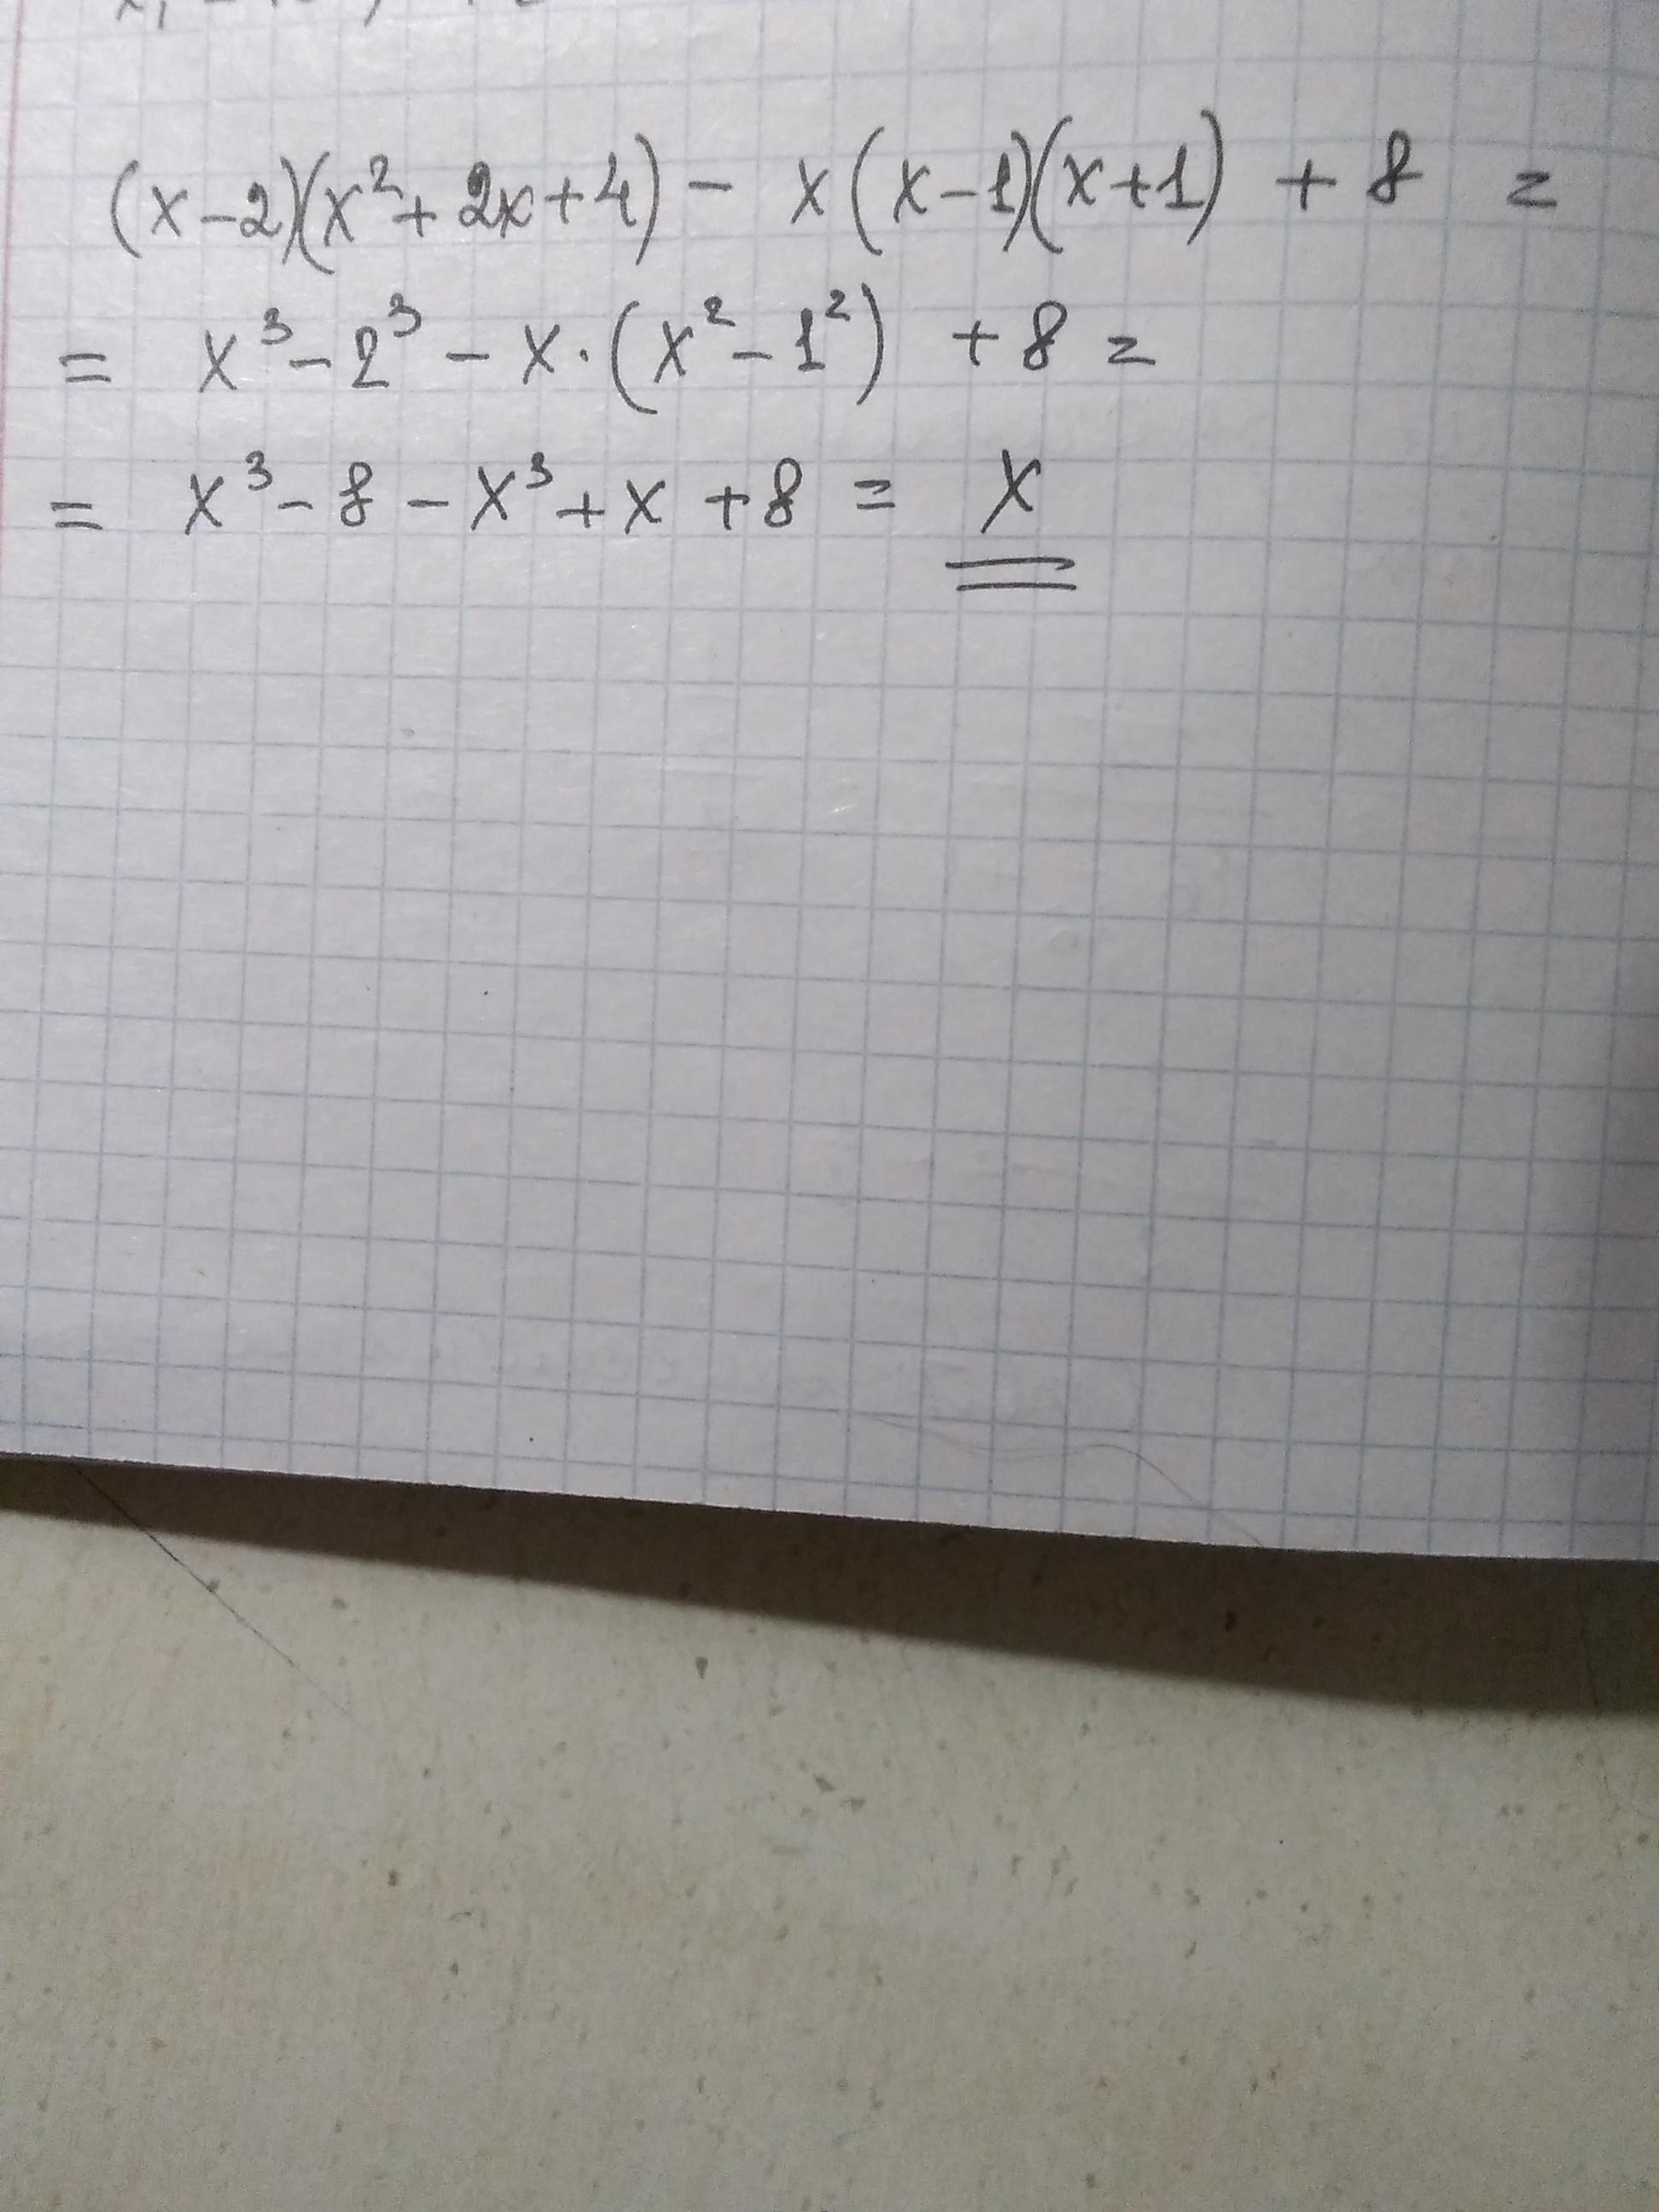 (x-2)(x²+2x+4) - x(x-1)(x+1) + 8 =
= x³-2³-x·(x²-1²) +8=
= x³-8-x³+x+8 = x